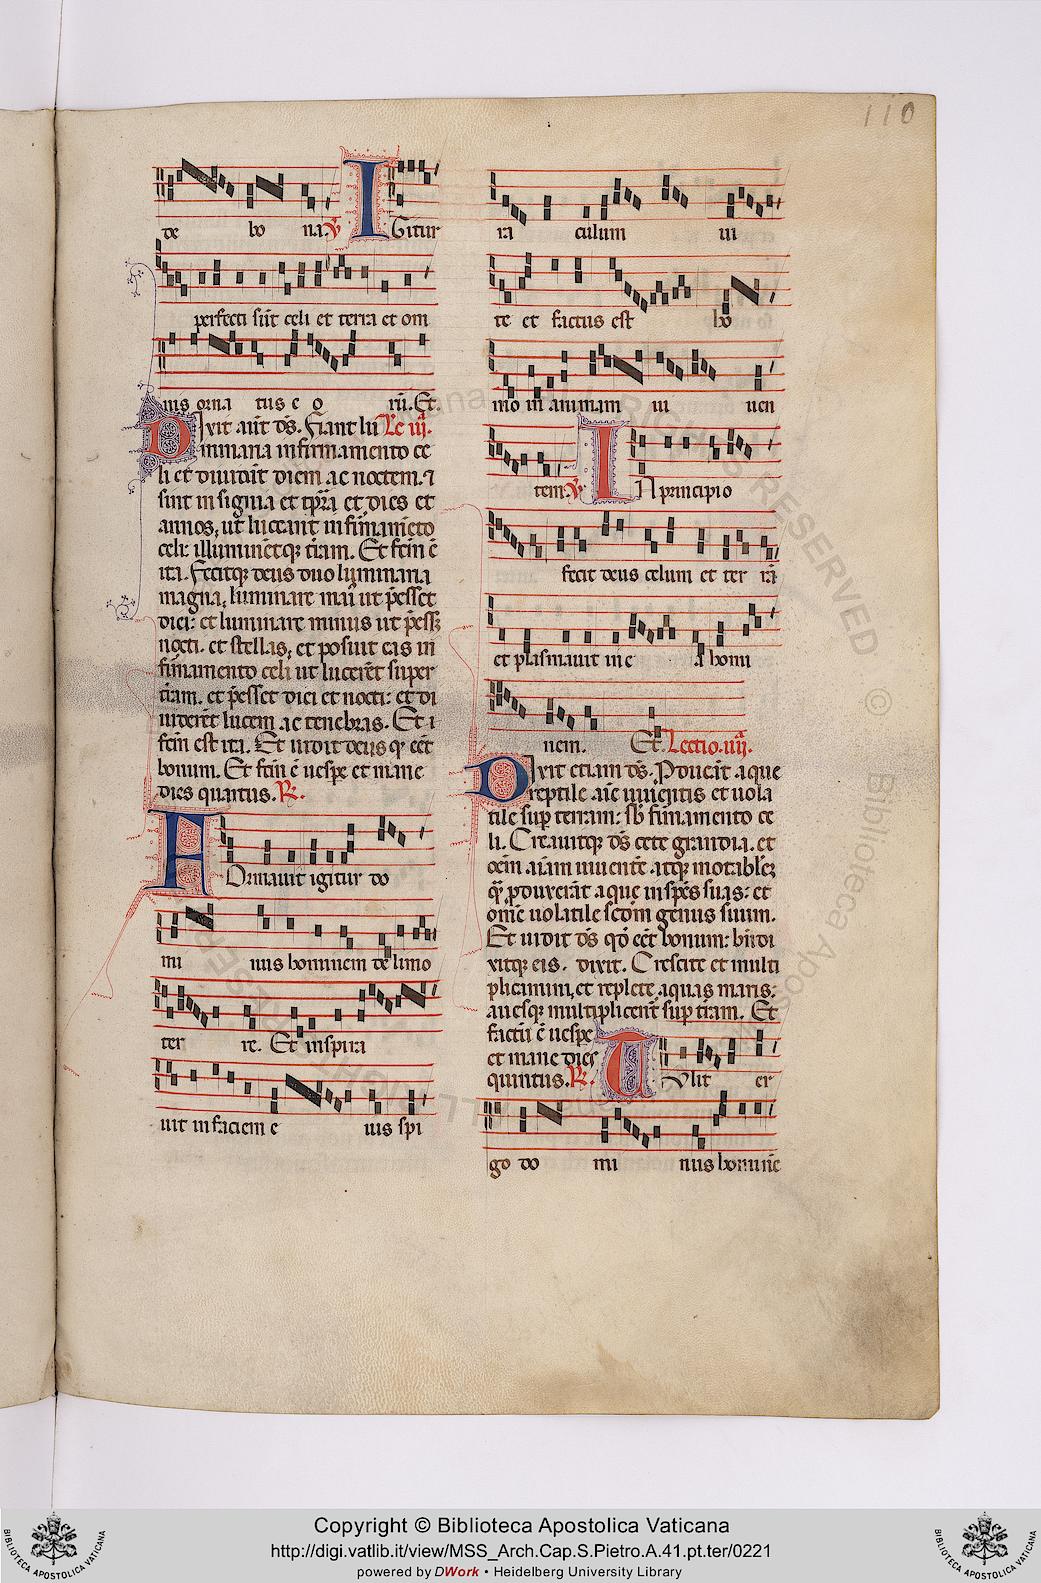 110
de bo na. ℣ IGitur
perfecti sūt celi et terra et om
nis orna tus e o rū. Et.
DIxit aūt ds̄. Fiant lu Le. iij.
minaria in firmamento ce
li et diuidāt diem ac noctem. ⁊
sint in signa et tp̄ra et dies et
annos, ut luceant in firmam̄eto
celi: illuminētqꝫ t̄ram. Et fc̄m ē
ita. Fecitqꝫ deus duo luminaria
magna, luminare mai᷒ ut p̄esset
diei: et luminare minus ut p̄ess3
nocti. et stellas, et posuit eas in
firmamento celi ut lucerēt super
t̄ram. et p̄essēt diei et nocti: et di
uiderēt lucem ac tenebras. Et ı
fc̄m est ita. Et uidit deus q̄ eēt
bonum. Et fc̄m ē uesp̄e et mane
dies quartus. ℟.
FOrmauit igitur do
mi nus hominem de limo
ter re. Et inspira
uit in faciem e ius spi
ra culum ui
te et factus est ho
mo in animam ui uen
tem. ℣ IN principio
fecit deus celum et ter rā
et plasmauit in e a homi
nem. Et. Lectio. iiij.
DIxit etiam ds̄. Poducāt aque
reptile aīe uiuentis et uola
tile sup terram: sb̄ firmamento ce
li. Creauitqꝫ ds̄ cete grandia. et
oēm aīam uiuentē atqꝫ motabilēꝫ
q̄ꝫ pduxerāt aque in spēs suas: et
omē uolatile scd̄m genus suum.
Et uidit ds̄ qd̄ eēt bonum: bn̄di
xitqꝫ eis. dixit. Crescite et multi
plicamini, et replete aquas maris:
auesqꝫ multiplicent sup t̄ram. Et
factū ē uesp̄e
et mane dies
quintus. ℟. TUlit er
go do mi nus hominē
Copyright © Biblioteca Apostolica Vaticana
http://digi.vatlib.it/view/MSS_Arch.Cap.S.Pietro.A.41.pt.ter/0221
powered by DWork • Heidelberg University Library
BIBLIOTECA APOSTOLICA VATICANA
BIBLIOTECA APOSTOLICA VATICANA